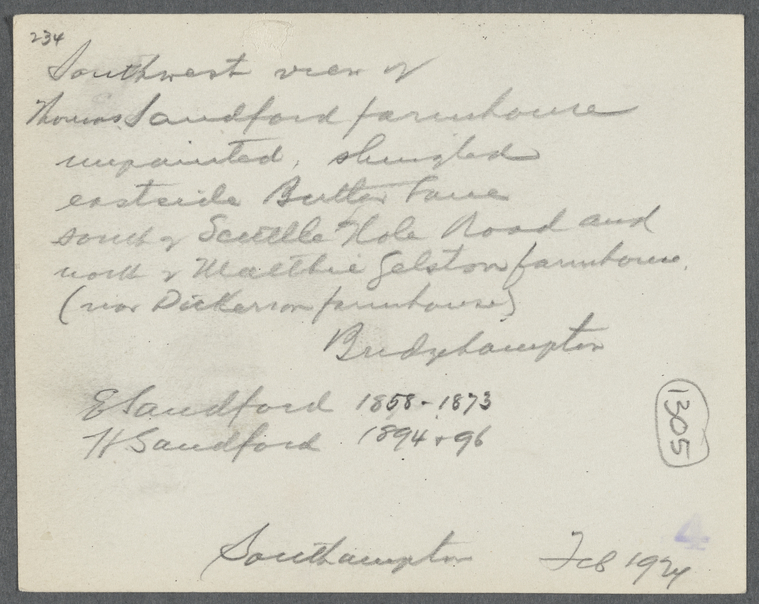 234
Southwest view of
Thomas Sandford farmhouse
unpainted, shingled
eastside Butter Lane
south of Scuttle Hole Road and
north of Maltbie Gelston farmhouse.
(now Dickerson farmhouse)
Bridgehampton
E Sandford 1858-1873
H Sandford 1894 + 96
1305
4
Southampton Feb